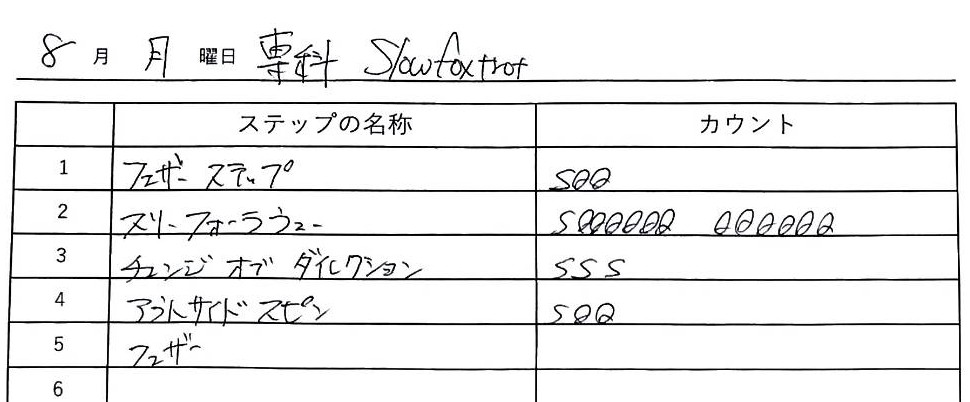 8 月 月 曜日 専科 Slowfoxtrot
ステップの名称 カウント
1 フェザーステップ SQQ
2 スリーフォーラウェー SQQQQQQ QQQQQQ
3 チェンジ オブ ダイレクション SSS
4 アウトサイドスピン SQQ
5 フェザー
6